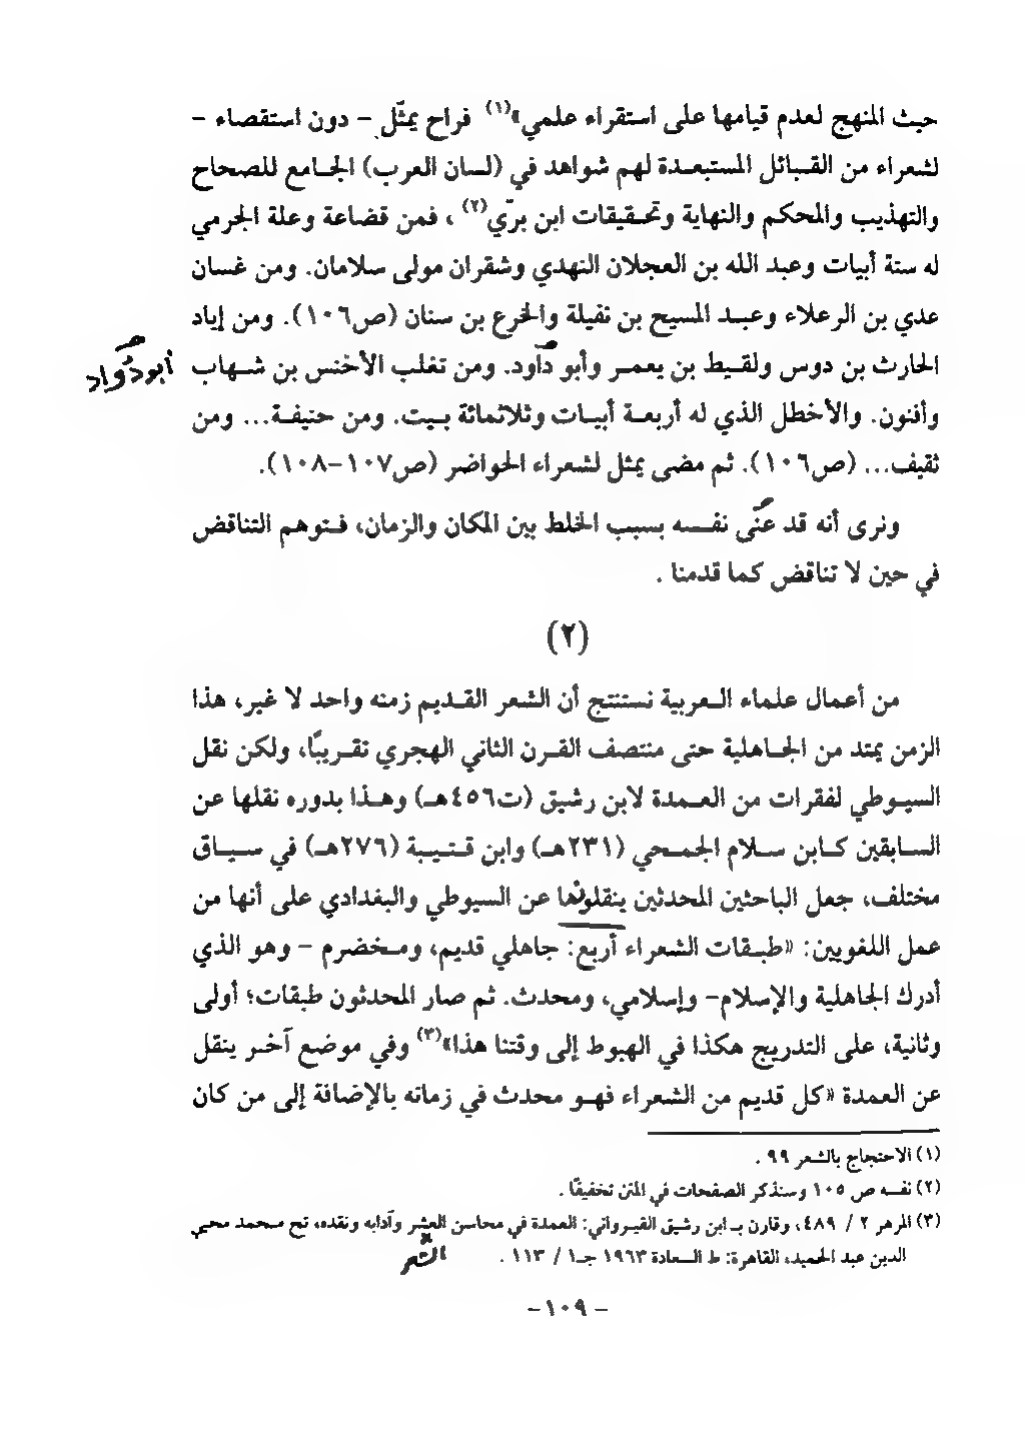 حيث المنهج لعدم قيامها على استقراء علمي»(١) فراح يمثّل – دون استقصاء –
لشعراء من القبائل المستبعدة لهم شواهد في (لسان العرب) الجامع للصحاح
والتهذيب والمحكم والنهاية وتحقيقات ابن برّي(٢) ، فمن قضاعة وعلة الجرمي
له ستة أبيات وعبد الله بن العجلان النهدي وشقران مولى سلامان. ومن غسان
عدي بن الرعلاء وعبد المسيح بن نفيلة والخرع بن سنان (ص١٠٦). ومن إياد
الحارث بن دوس ولقيط بن يعمر وأبو داود. ومن تغلب الأخنس بن شهاب
أبو دُواد
وأفنون. والأخطل الذي له أربعة أبيات وثلاثمائة بيت. ومن حنيفة... ومن
ثقيف... (ص١٠٦). ثم مضى يمثل لشعراء الحواضر (ص١٠٧–١٠٨).
ونرى أنه قد عنّى نفسه بسبب الخلط بين المكان والزمان، فتوهم التناقض
في حين لا تناقض كما قدمنا .
(٢)
من أعمال علماء العربية نستنتج أن الشعر القديم زمنه واحد لا غير، هذا
الزمن يمتد من الجاهلية حتى منتصف القرن الثاني الهجري تقريبًا، ولكن نقل
السيوطي لفقرات من العمدة لابن رشيق (ت٤٥٦هـ) وهذا بدوره نقلها عن
السابقين كابن سلام الجمحي (٢٣١هـ) وابن قتيبة (٢٧٦هـ) في سياق
مختلف، جعل الباحثين المحدثين ينقلونها عن السيوطي والبغدادي على أنها من
عمل اللغويين: «طبقات الشعراء أربع: جاهلي قديم، ومخضرم – وهو الذي
أدرك الجاهلية والإسلام– وإسلامي، ومحدث. ثم صار المحدثون طبقات؛ أولى
وثانية، على التدريج هكذا في الهبوط إلى وقتنا هذا»(٣) وفي موضع آخر ينقل
عن العمدة «كل قديم من الشعراء فهو محدث في زمانه بالإضافة إلى من كان
(١) الاحتجاج بالشعر ٩٩ .
(٢) نفسه ص ١٠٥ وسنذكر الصفحات في المتن تخفيفًا .
(٣) المزهر ٢ / ٤٨٩، وقارن بـ ابن رشيق القيرواني: العمدة في محاسن العشر وآدابه ونقده، تح محمد محيي
الدين عبد الحميد، القاهرة: ط السعادة ١٩٦٣ جـ١ / ١١٣ .
الشعر
– ١٠٩ –